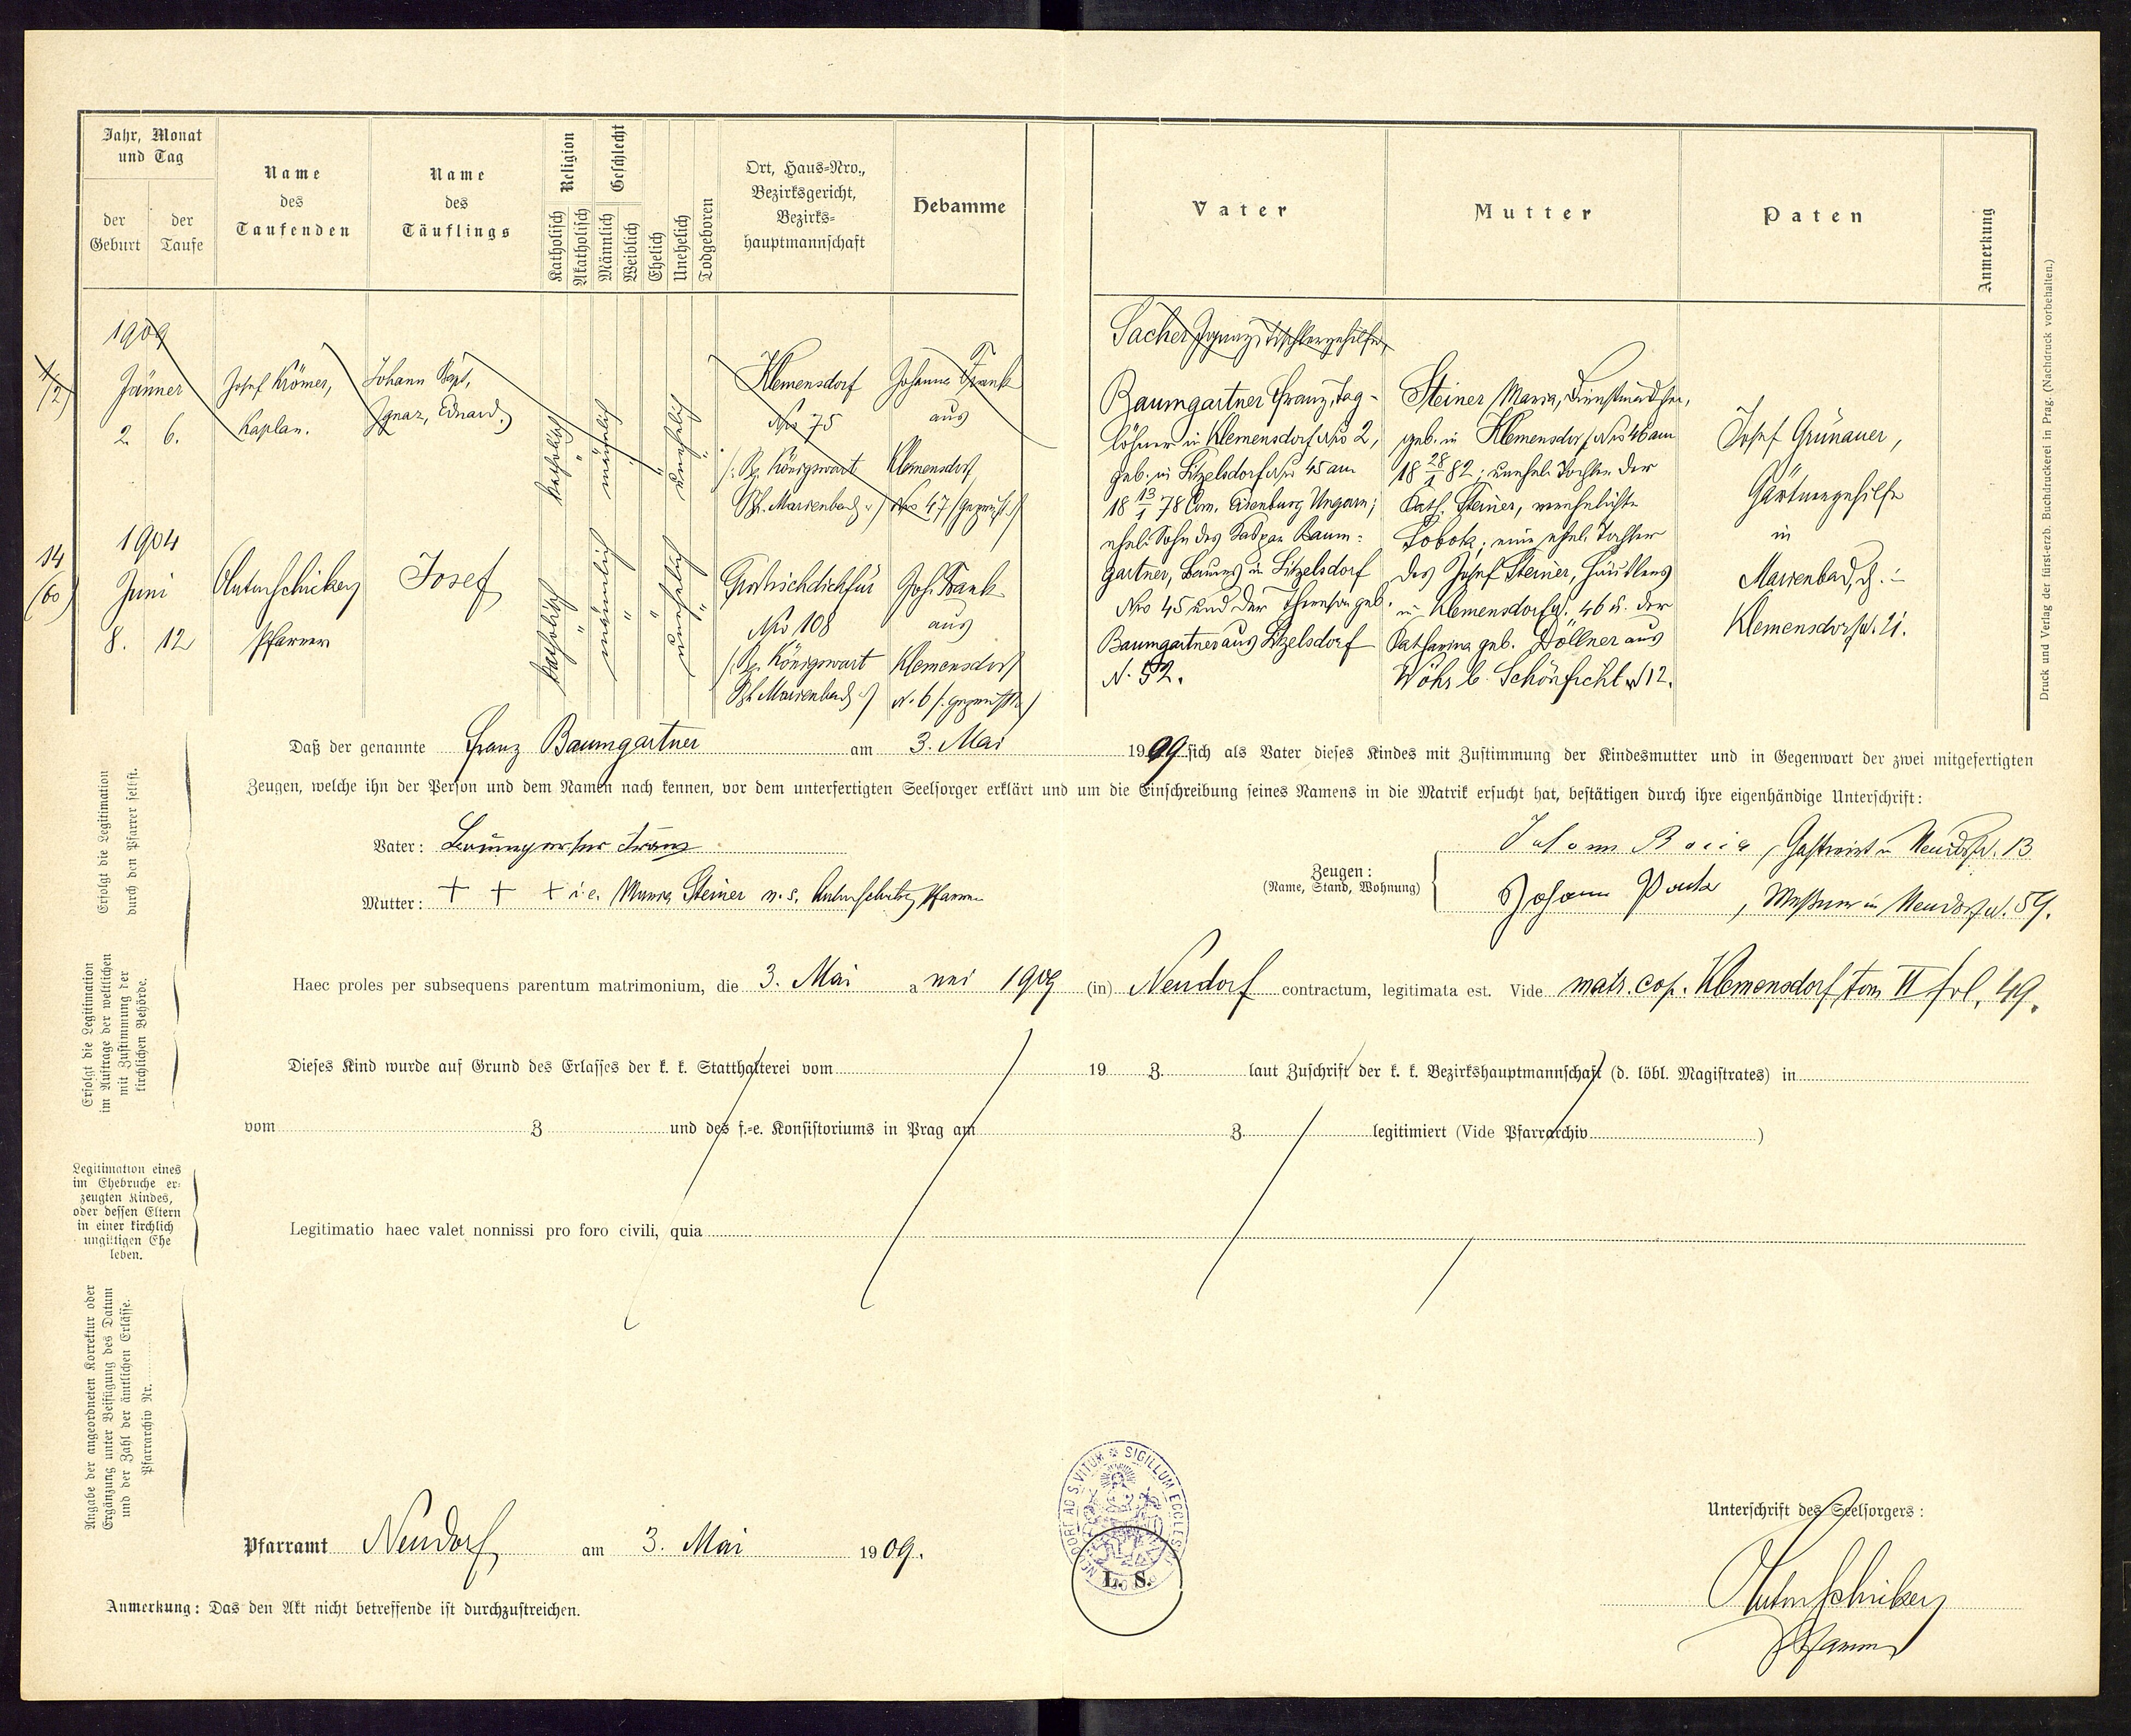 Jahr, Monat
und Tag
der
Geburt
der
Taufe
Name
des
Taufenden
Name
des
Täuflings
Religion
Katholisch
Akatholisch
Geschlecht
Männlich
Weiblich
Ehelich
Unehelich
Todgeboren
Ort, Haus-Nro.,
Bezirksgericht,
Bezirks-
hauptmannschaft
Hebamme
Vater
Mutter
Paten
Anmerkung
1909
Jänner
2. 6.
Josef Krömer,
Kaplan.
Johann Bapt,
Ignaz, Eduard.
katholisch
männlich
unehelich
Klemensdorf
Nro 75
Königswart
Marienbad
Johanna Frank
aus
Klemensdorf
Nro 47 (geprüft)
14
(60)
1904
Juni
8. 12
Pfarrer
Josef
katholisch
männlich
unehelich
Großsichdichfür
Nro 108
Königswart
Marienbad
Joh. Frank
aus
Klemensdorf
N. 6 /: geprüft :/
Sacher Ignaz, Tischlergehilfe,
Baumgartner Franz, Tag-
löhner in Klemensdorf Nro 2,
geb. in Litzelsdorf Nro 45 am
18 13/1 78 Com. Eisenburg Ungarn;
ehel. Sohn des Kaspar Baum-
gartner, Bauers in Litzelsdorf
Nro 45 und der Theresia geb.
Baumgartner aus Litzelsdorf
N. 52.
Steiner Maria, Dienstmädchen,
geb. in Klemensdorf Nro 46 am
18 28/1 82; unehel. Tochter der
Kath. Steiner, verehelichte
Bobok; eine ehel. Tochter
des Josef Steiner, Häuslers
in Klemensdorf N. 46 u. der
Katharina geb. Döllner aus
Wöhr b. Schönficht N 12.
Josef Grünauer,
Gärtnergehilfe
in
Marienbad,
Klemensdorf N. 21.
Druck und Verlag der fürst-erzb. Buchdruckerei in Prag. (Nachdruck vorbehalten.)
Daß der genannte Franz Baumgartner am 3. Mai 1909 sich als Vater dieses Kindes mit Zustimmung der Kindesmutter und in Gegenwart der zwei mitgefertigten
Zeugen, welche ihn der Person und dem Namen nach kennen, vor dem unterfertigten Seelsorger erklärt und um die Einschreibung seines Namens in die Matrik ersucht hat, bestätigen durch ihre eigenhändige Unterschrift:
Erfolgt die Legitimation
durch den Pfarrer selbst.
Vater: Baumgartner Franz
Mutter: + + + i.e. Maria Steiner n. s.
Zeugen:
(Name, Stand, Wohnung)
Gastwirt in Neudorf N. 13
Johann , Meßner in Neudorf N. 59.
Erfolgt die Legitimation
im Auftrage der weltlichen
mit Zustimmung der
kirchlichen Behörde.
Haec proles per subsequens parentum matrimonium, die 3. Mai anni 1909 (in) Neudorf contractum, legitimata est. Vide matr. cop. Klemensdorf tom VI fol. 49.
Dieses Kind wurde auf Grund des Erlasses der k. k. Statthalterei vom 19 Z. laut Zuschrift der k. k. Bezirkshauptmannschaft (d. löbl. Magistrates) in
vom Z und des f.-e. Konsistoriums in Prag am Z legitimiert (Vide Pfarrarchiv )
Legitimation eines
im Ehebruche er-
zeugten Kindes,
oder dessen Eltern
in einer kirchlich
ungiltigen Ehe
leben.
Legitimatio haec valet nonnissi pro foro civili, quia
Angabe der angeordneten Korrektur oder
Ergänzung unter Beifügung des Datum
und der Zahl der ämtlichen Erlässe.
Pfarrarchiv Nr.
Pfarramt Neudorf am 3. Mai 1909.
SIGILLUM ECCLESIÆ
NEUDORF AD S. VITUM
L. S.
Unterschrift des Seelsorgers:
Pfarrer
Anmerkung: Das den Akt nicht betreffende ist durchzustreichen.